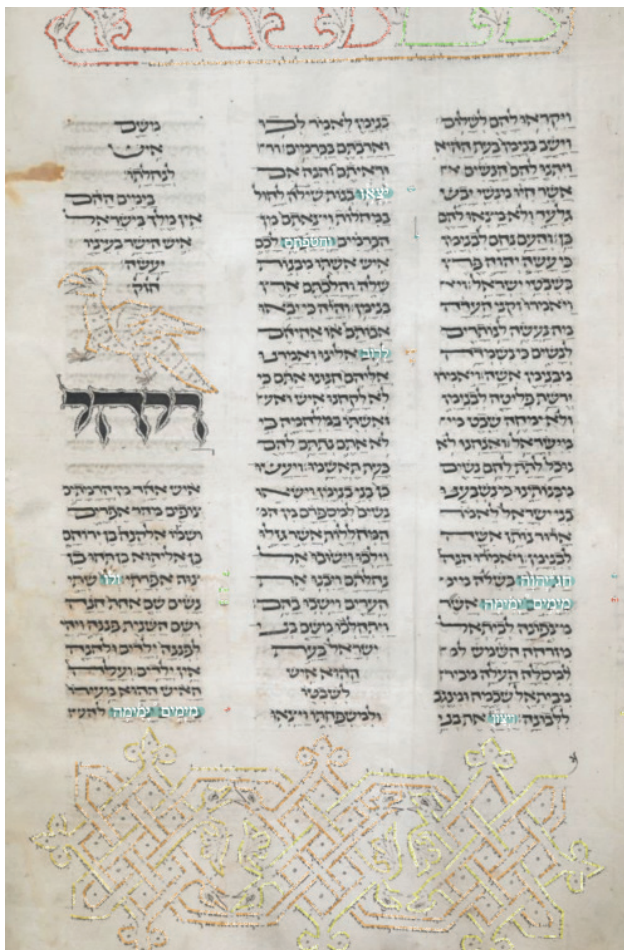 ויקראו להם לשלום
וישב בנימן בעת ההיא
ויתנו להם הנשים א
אשר חיו מנשי יבש
גלעד ולא מצאו להם
כן והעם נחם לבנימן
כי עשה יהוה פרץ
בשבטי ישראל ויא
ויאמרו זקני העדה
מה נעשה לנותרים
לנשים כי נשמדה
מבנימן אשה ויאמרו
ירשת פליטה לבנימן
ולא ימחה שבט מי
מישראל ואנחנו לא
נוכל לתת להם נשים
מבנותינו כי נשבעו
בני ישראל לאמר
ארור נותן אשה
לבנימן ויאמרו הנה
חג יהוה בשלה מימ
מימים ימימה אשר
מצפונה לבית אל
מזרחה השמש למ
למסלה העלה מבית
מבית אל שכמה ומנגב
ללבונה ויצו את בני
בנימן לאמר לכו
וארבתם בכרמים ור
וראיתם והנה אם
יצאו בנות שילה לחול
במחלות ויצאתם מן
הכרמים וחטפתם לכם
איש אשתו מבנות
שלה והלכתם ארץ
בנימן והיה כי יבאו
אבותם או אחיהם
לרוב אלינו ואמרנו
אליהם חנונו אתם כי
לא לקחנו איש וא
אשתו במלחמה כי
לא אתם נתתם להם
כעת תאשמו ויעשו
כן בני בנימן וישאו
נשים למספרם מן המ
המחללות אשר גזלו
וילכו וישובו אל
נחלתם ויבנו את
הערים וישבו בהם
ויתהלכו משם בני
ישראל בעת
ההוא איש
לשבטו
ולמשפחתו ויצאו
משם
איש
לנחלתו
בימים ההם
אין מלך בישראל
איש הישר בעיניו
יעשה
חזק
ויהי
איש אחד מן הרמתים
צופים מהר אפרים
ושמו אלקנה בן ירוחם
בן אליהוא בן תחו בן
צוף אפרתי ולו שתי
נשים שם אחת חנה
ושם השנית פננה ויהי
לפננה ילדים ולחנה
אין ילדים ועלה
האיש ההוא מעירו
מימים ימימה להש